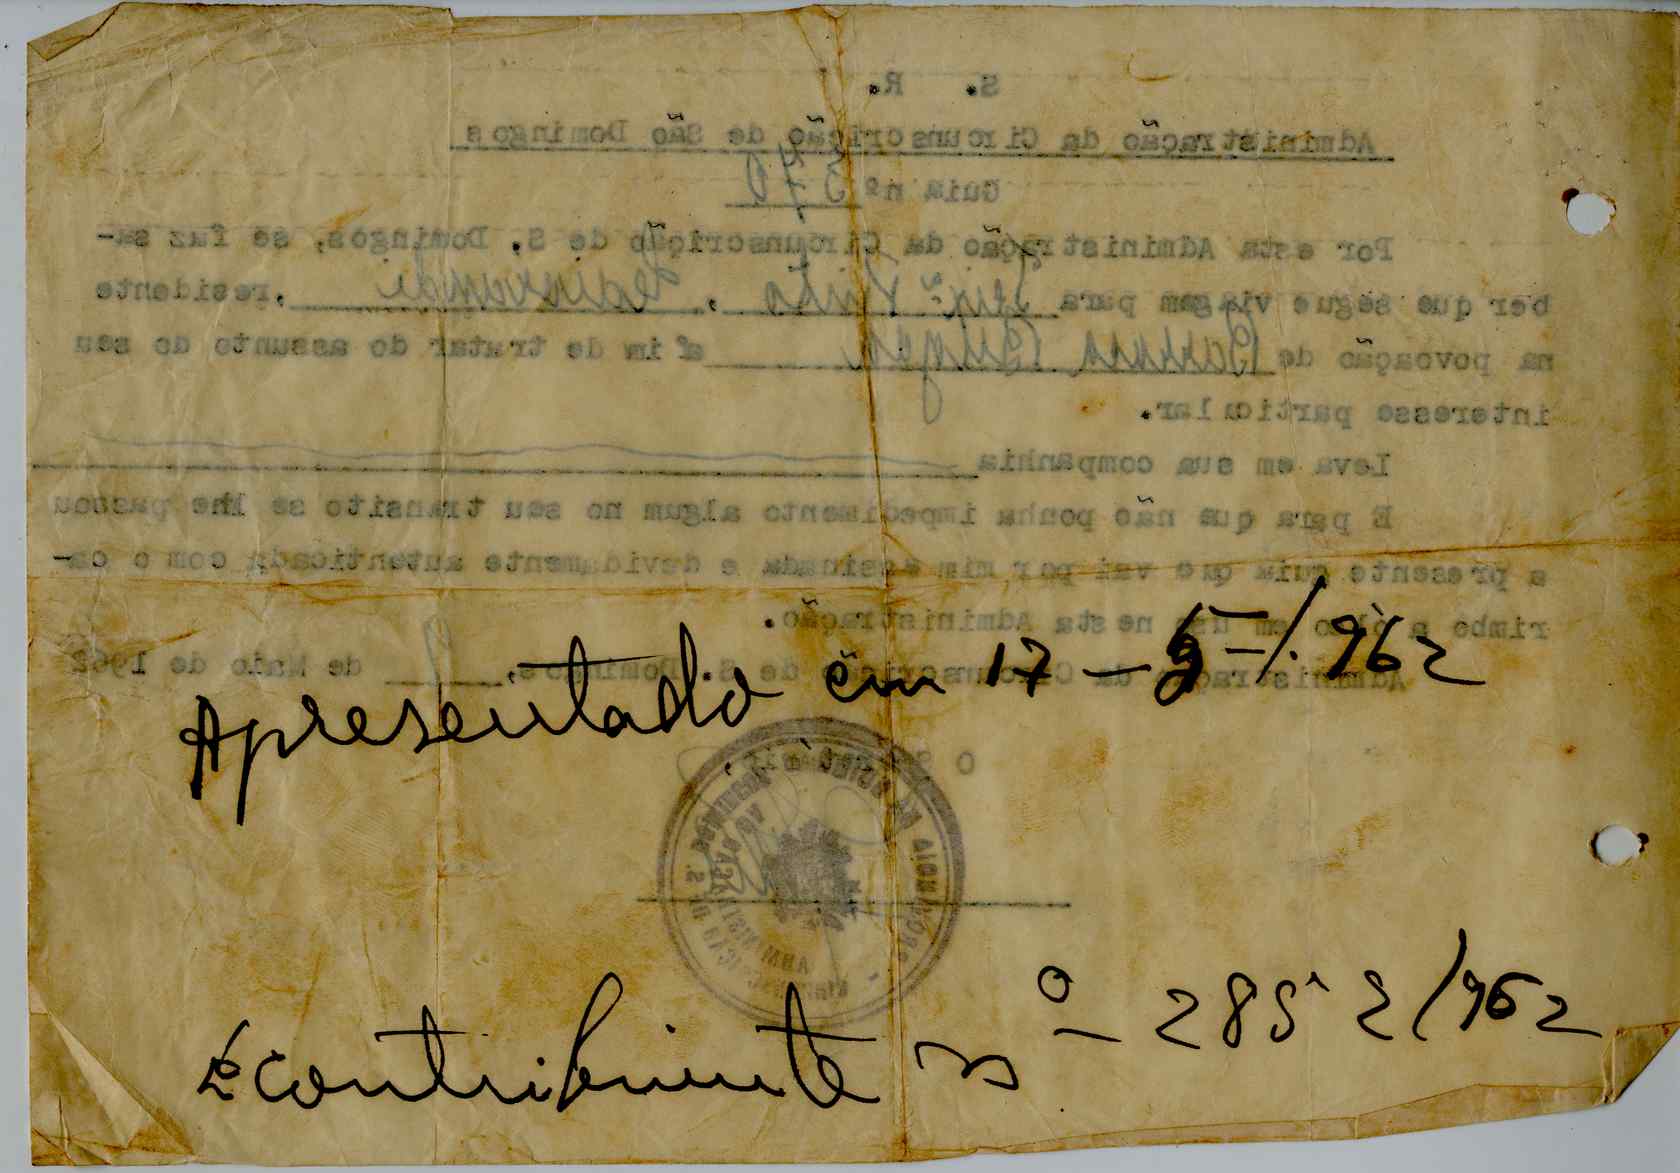 S. R.
Administração da Circunscrição de São Domingos
Guia nº
Por esta Administração da Circunscrição de S. Domingos, se faz sa-
ber que segue viagem para Teixª Pinto, , residente
na povoação de afim de tratar do assunto do seu
interesse particular.
Leva em sua companhia
E para que não ponha impedimento algum no seu transito se lhe passou
a presente guia que vai por mim assinada e devidamente autenticada com o ca-
rimbo a óleo em uso nesta Administração.
Administração da Circunscrição de S. Domingos, 9 de Maio de 1962
Apresentado em 17-5-/.962
O
PROVINCIA DA GUINÉ
ADMINISTRAÇÃO DA
É contribuinte nº - 2852/962